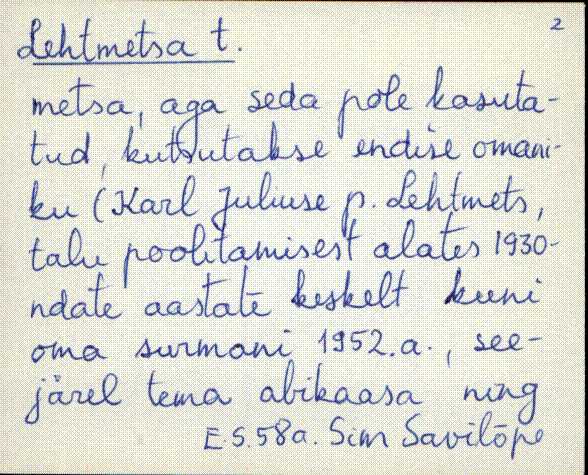 2
Lehtmetsa t.
metsa, aga seda pole kasuta-
tud, kutsutakse endise omani-
ku (Karl Juliuse p. Lehtmets,
talu poolitamisest alates 1930-
ndate aastate keskelt kuni
oma surmani 1952.a., see-
järel tema abikaasa ning
E S.58a. Sim Savilõpe